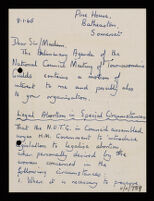 8.1.65
Pine House,
Batheaston,
Somerset
Dear Sir/Madam,
The Preliminary Agenda of the
National Council Meeting of Townswomens
Guilds contains a motion of
interest to me and possibly also
to your organisation.
Legal Abortion in Special Circumstances
That the N.U.T.G. in Council assembled
urges H.M. Government to introduce
legislation to legalise abortion
when personally desired by the
woman concerned in the
following circumstances:
1. When it is necessary to preserve